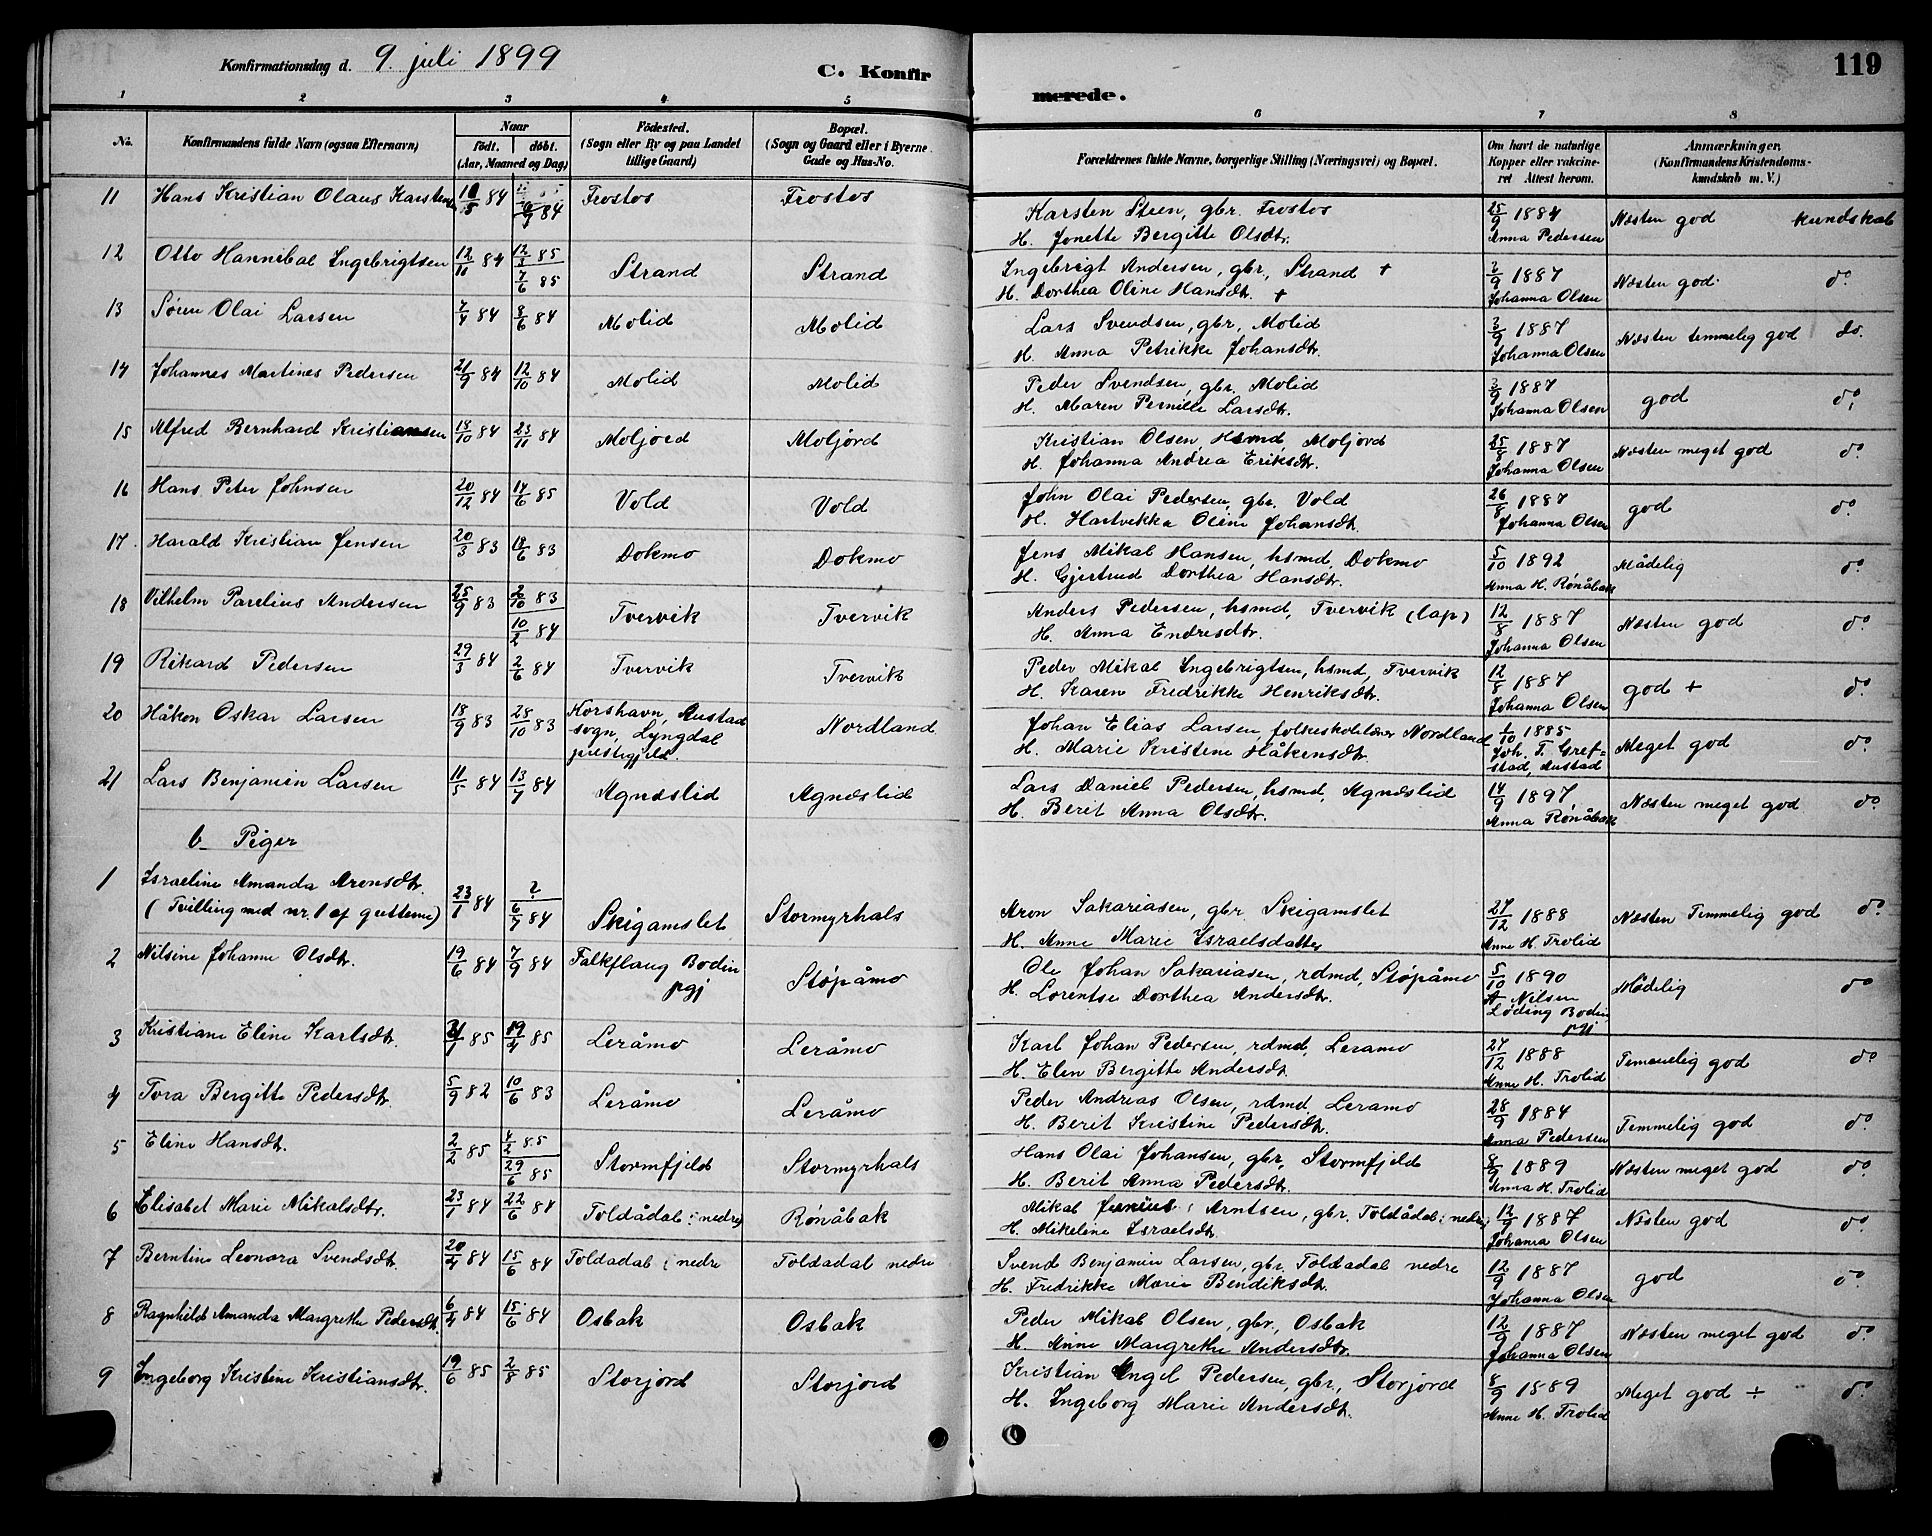 Konfirmationsdag d. 9. juli 1899
C. Konfirmerede.
119
1 2 3 4 5 6 7 8
No. Konfirmandens fulde Navn (ogsaa Efternavn) Naar født. døbt. (Aar, Maaned og Dag) Fødested. (Sogn eller By og paa Landet tillige Gaard) Bopæl. (Sogn og Gaard eller i Byerne Gade og Hus-No. Forældrenes fulde Navne, borgerlige Stilling (Næringsvei) og Bopæl. Om havt de naturlige Kopper eller vakcineret Attest herom. Anmærkninger. (Konfirmandens Kristendomskundskab m. V.)
11 Hans Kristian Olaus Karstens 84 84 Frostos Frostos Karsten Steen, gbr. Frostos 25/9 1884 Næsten god kundskab
H. Jonette Bergitte Olsdtr. Anna Pedersen
12 Otto Hannibal Ingebrigtsen 12/11 84 12/3 85 7/6 85 Strand Strand Ingebrigt Andersen, gbr, Strand + 2/9 1887 Næsten god do
H. Dorthea Oline Hansdt. + Johanna Olsen
13 Søren Olai Larsen 7/4 84 8/6 84 Molid Molid Lars Svendsen, gbr, Molid 3/9 1887 Næsten temmelig god do.
H. Anna Petrikke Johansdtr. Johanna Olsen
14 Johannes Martines Pedersen 21/9 84 12/10 84 Molid Molid Peder Svendsen, gbr. Molid 3/9 1887 god do
H. Maren Pernille Larsdtr. Johanna Olsen
15 Alfred Bernhard Kristiansen 18/10 84 23/11 84 Moljord Moljord Kristian Olsen, Hsmd, Moljord 25/8 1887 Næsten meget god do
H. Johanna Andrea Eriksdtr. Johanna Olsen
16 Hans Peter Johnsen 20/12 84 14/6 85 Vold Vold John Olai Pedersen, gbr. Vold 26/8 1887 god do
H. Hartvikka Oline Johansdt. Johanna Olsen
17. Harald Kristian Jensen 20/3 83 18/6 83 Dokmo Dokmo Jens Mikal Hansen, hsmd, Dokmo 5/10 1892 Mådelig do
H. Gjertrud Dorthea Hansdtr. Anna H. Rønåbak
18 Vilhelm Parelius Andersen 25/9 83 2/10 83 10/2 84 Tvervik Tvervik Anders Pedersen, hsmd, Tvervik (lap) 12/8 1887 Næsten god do
H. Anna Endresdtr. Johanna Olsen
19 Rikard Pedersen 29/3 84 2/6 84 Tvervik Tvervik Peder Mikal Ingebrigtsen, hsmd, Tvervik 12/8 1887 god + do
H. Karen Fredrikke Henriksdtr. Johanna Olsen
20 Håkon Oskar Larsen 18/9 83 28/10 83 Korshavn, Austad sogn, Lyngdal prestigjeld. Nordland Johan Elias Larsen, folkeskolelærer Nordland 1/10 1885 Meget god do
H. Marie Kristine Håkensdtr. Joh. T. Gref=stad, Austad
21 Lars Benjamin Larsen 11/5 84 13/7 84 Agnæslid Agnæslid Lars Daniel Pedersen, hsmd, Agnæslid 14/9 1897, Næsten meget god do
H. Berit Anna Olsdtr. Anna Rønåbak
b. Piger
1 Israeline Amanda Aronsdtr. 23/1 84 ? 6/7 84 Skigamslet Stormyrhals Aron Sakariasen, gbr. Skigamslet 27/12 1888 Næsten Temmelig god do
(Tvilling med nr. 1 af gutterne) H. Anne Marie Israelsdatter Anne H. Trolid
2 Nilsine Johanne Olsdtr. 19/6 84 7/9 84 Falkflaug Bodin pgj Støpåmo Ole Johan Sakariasen, rdmd, Støpåmo 5/10 1890 Mådelig do
H. Lorentse Dorthea Andersdtr. A Nilsen Løding Bodin pgj
3 Kristiane Eline Karlsdt. 85 19/4 85 Leråmo Leråmo Karl Johan Pedersen, rdmd, Leramo 27/12 1888 Temmelig god do
H. Elen Bergitte Andersdt. Anne H. Trolid
4 Tora Bergitte Pedersdtr. 5/9 82 10/6 83 Leråmo Leråmo Peder Andreas Olsen, rdmd, Leramo 28/9 1884 Temmelig god do
H. Berit Kristine Pedersdtr. Anna Pedersen
5 Eline Hansdtr. 2/2 85 4/2 85 29/6 85 Stormfjeld Stormyrhals Hans Olai Johansen, gbr, Stormfjeld 8/9 1889 Næsten meget god do
H. Berit Anna Pedersdtr. Anna H. Trolid
6 Elisabet Marie Mikalsdtr. 23/1 84 22/6 84 Toldådal: nedre Rønåbak Mikal Junius Arntsen, gbr. Toldådal: nedre 12/9 1887 Næsten god do
H. Mikeline Israelsdt. Johanna Olsen
7 Berntine Leonora Svendsdtr. 20/4 84 15/6 84 Toldadal: nedre Toldadal nedre Svend Benjamin Larsen, gbr. Toldadal nedre 12/9 1887 god do
H. Fredrikke Marie Bendiksdtr. Johanna Olsen
8 Ragnhild Amanda Margrethe Pedersdt. 6/4 84 15/6 84 Osbak Osbak Peder Mikal Olsen, gbr, Osbak 12/9 1887 Næsten meget god do
H. Anne Margrethe Andersdtr. Johanna Olsen
9 Ingeborg Kristine Kristiansdtr. 19/6 85 2/8 85 Storjord Storjord Kristian Angel Pedersen, gbr, Storjord 8/9 1889 Meget god ÷ do
H. Ingeborg Marie Andersdt. Anne H. Trolid